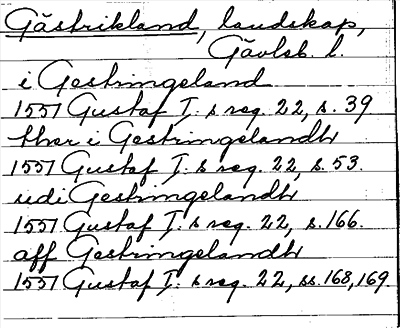 Gästrikland, landskap,
Gävleb. l.
i Gestringeland
1551 Gustaf I:s reg. 22, s. 39
ther i Gestringelandh
1551 Gustaf I:s reg. 22, s. 53.
udi Gestringelandh
1551 Gustaf I:s reg. 22, s. 166.
aff Gestringelandh
1551 Gustaf I:s reg. 22, ss. 168, 169.